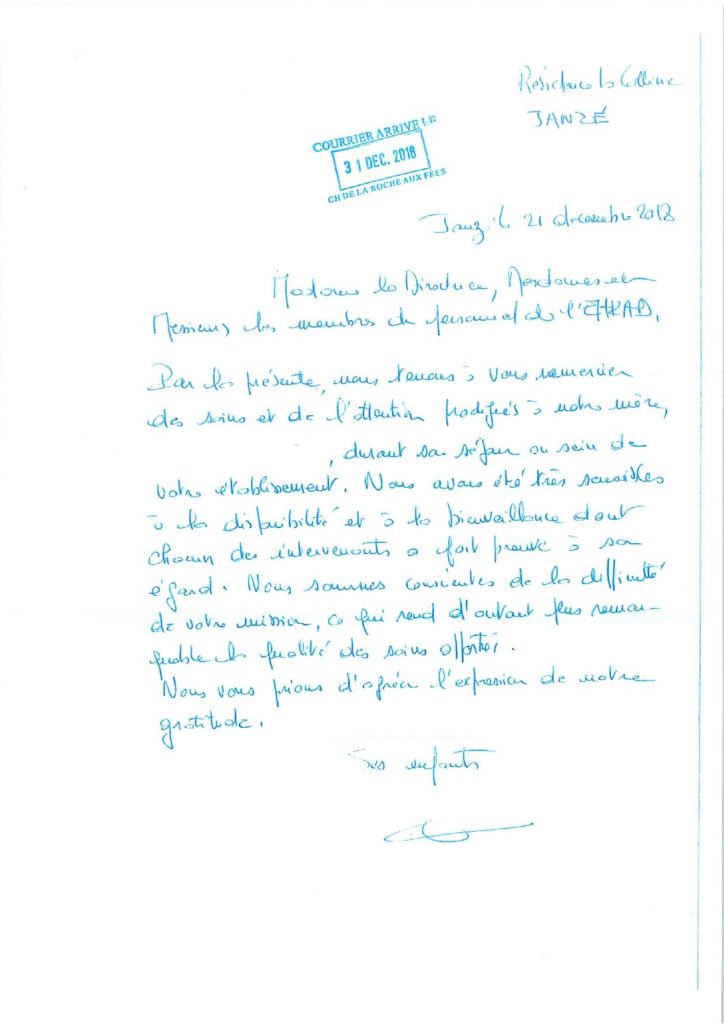 Résidence la Colline
JANZÉ
COURRIER ARRIVE LE
31 DEC. 2018
CH DE LA ROCHE AUX FÉES
Janzé le 21 décembre 2018
Madame la Directrice, Mesdames et
Messieurs les membres du personnel de l'EHPAD,
Par la présente, nous tenons à vous remercier
des soins et de l'attention prodigués à notre mère,
, durant son séjour au sein de
votre établissement. Nous avons été très sensibles
à la disponibilité et à la bienveillance dont
chacun des intervenants a fait preuve à son
égard. Nous sommes conscientes de la difficulté
de votre mission, ce qui rend d'autant plus remar-
quable la qualité des soins apportés.
Nous vous prions d'agréer l'expression de notre
gratitude.
Ses enfants